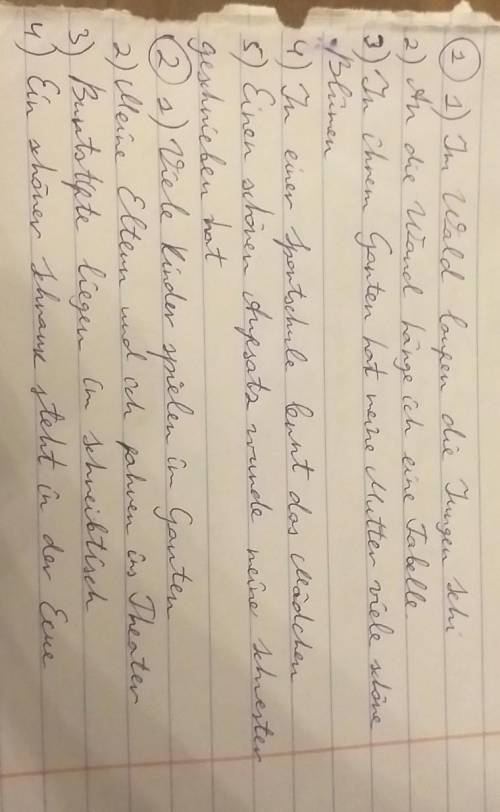 ① 1) Im Wald laufen die Jungen Schi
2) An die Wand hänge ich eine Tabelle.
3) In ihrem Garten hat meine Mutter viele schöne
Blumen
4) In einer Sportschule lernt das Mädchen
5) Einen schönen Aufsatz wurde meine Schwester
geschrieben hat
② 1) Viele Kinder spielen im Garten
2) Meine Eltern und ich fahren ins Theater
3) Buntstifte liegen im Schreibtisch
4) Ein schöner Schrank steht in der Ecke